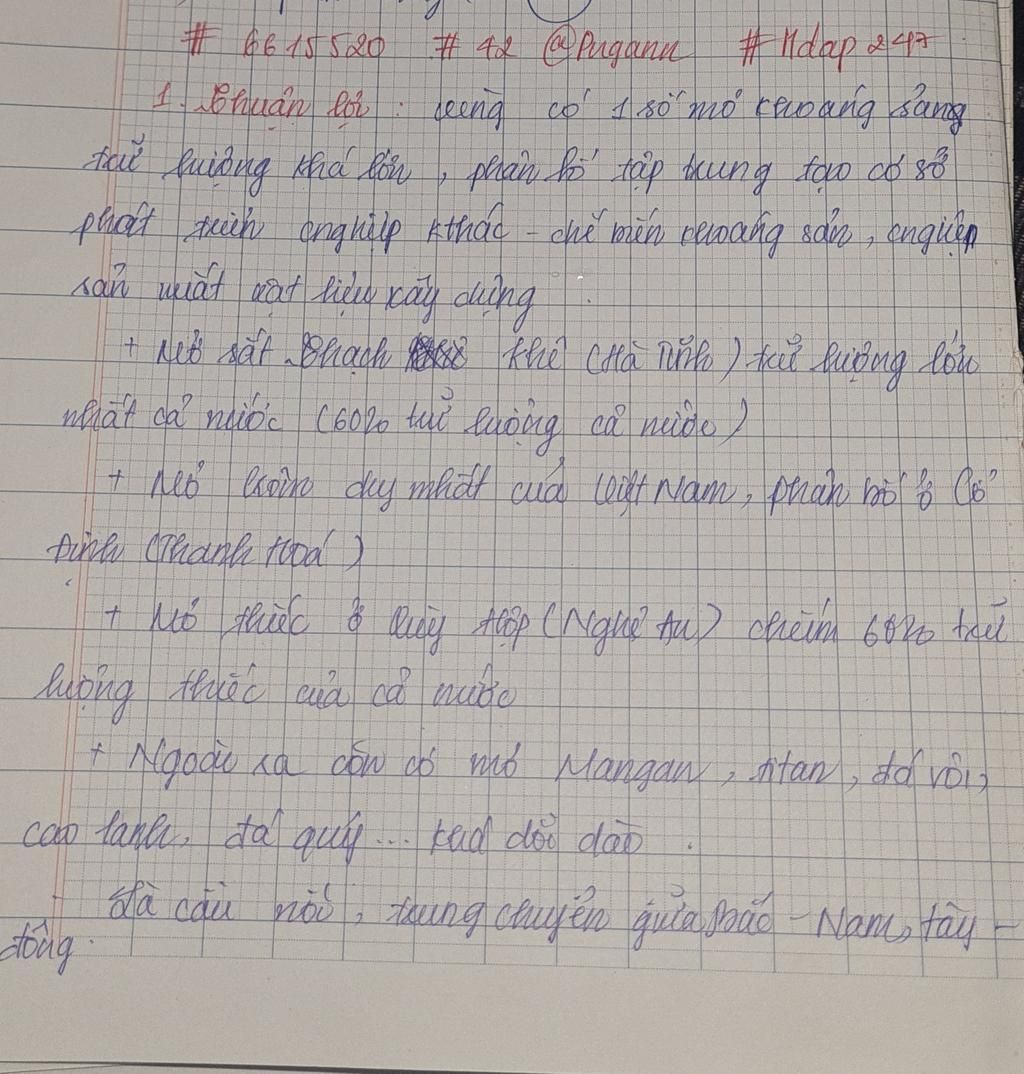 # 6615520 # 42 @Pugann # Hdap 247
1. Thuận lợi : vùng có 1 số mỏ khoáng sảng
trữ lượng khá lớn, phân bố tập trung tạo cớ sở
phát triển cnghiệp kthác - chế biến khoáng sản, cnghiệp
sản xuất vật liệu xây dựng
+ Mỏ sắt Thạch Khê (Hà Tĩnh) trữ lượng lớn
nhất cả nước (60% trữ lượng cả nước)
+ Mỏ crôm duy nhất của Việt Nam, phân bố ở Cổ
Định (Thanh Hoá)
+ Mỏ thiếc ở Quỳ Hợp (Nghệ An) chiếm 60% trữ
lượng thiếc của cả nước
+ Ngoài ra còn có mỏ Mangan, titan, đá vôi,
cao lanh, đá quý... khá dồi dào.
- là cầu nối, trung chuyển giữa Bắc - Nam, tây -
đông.